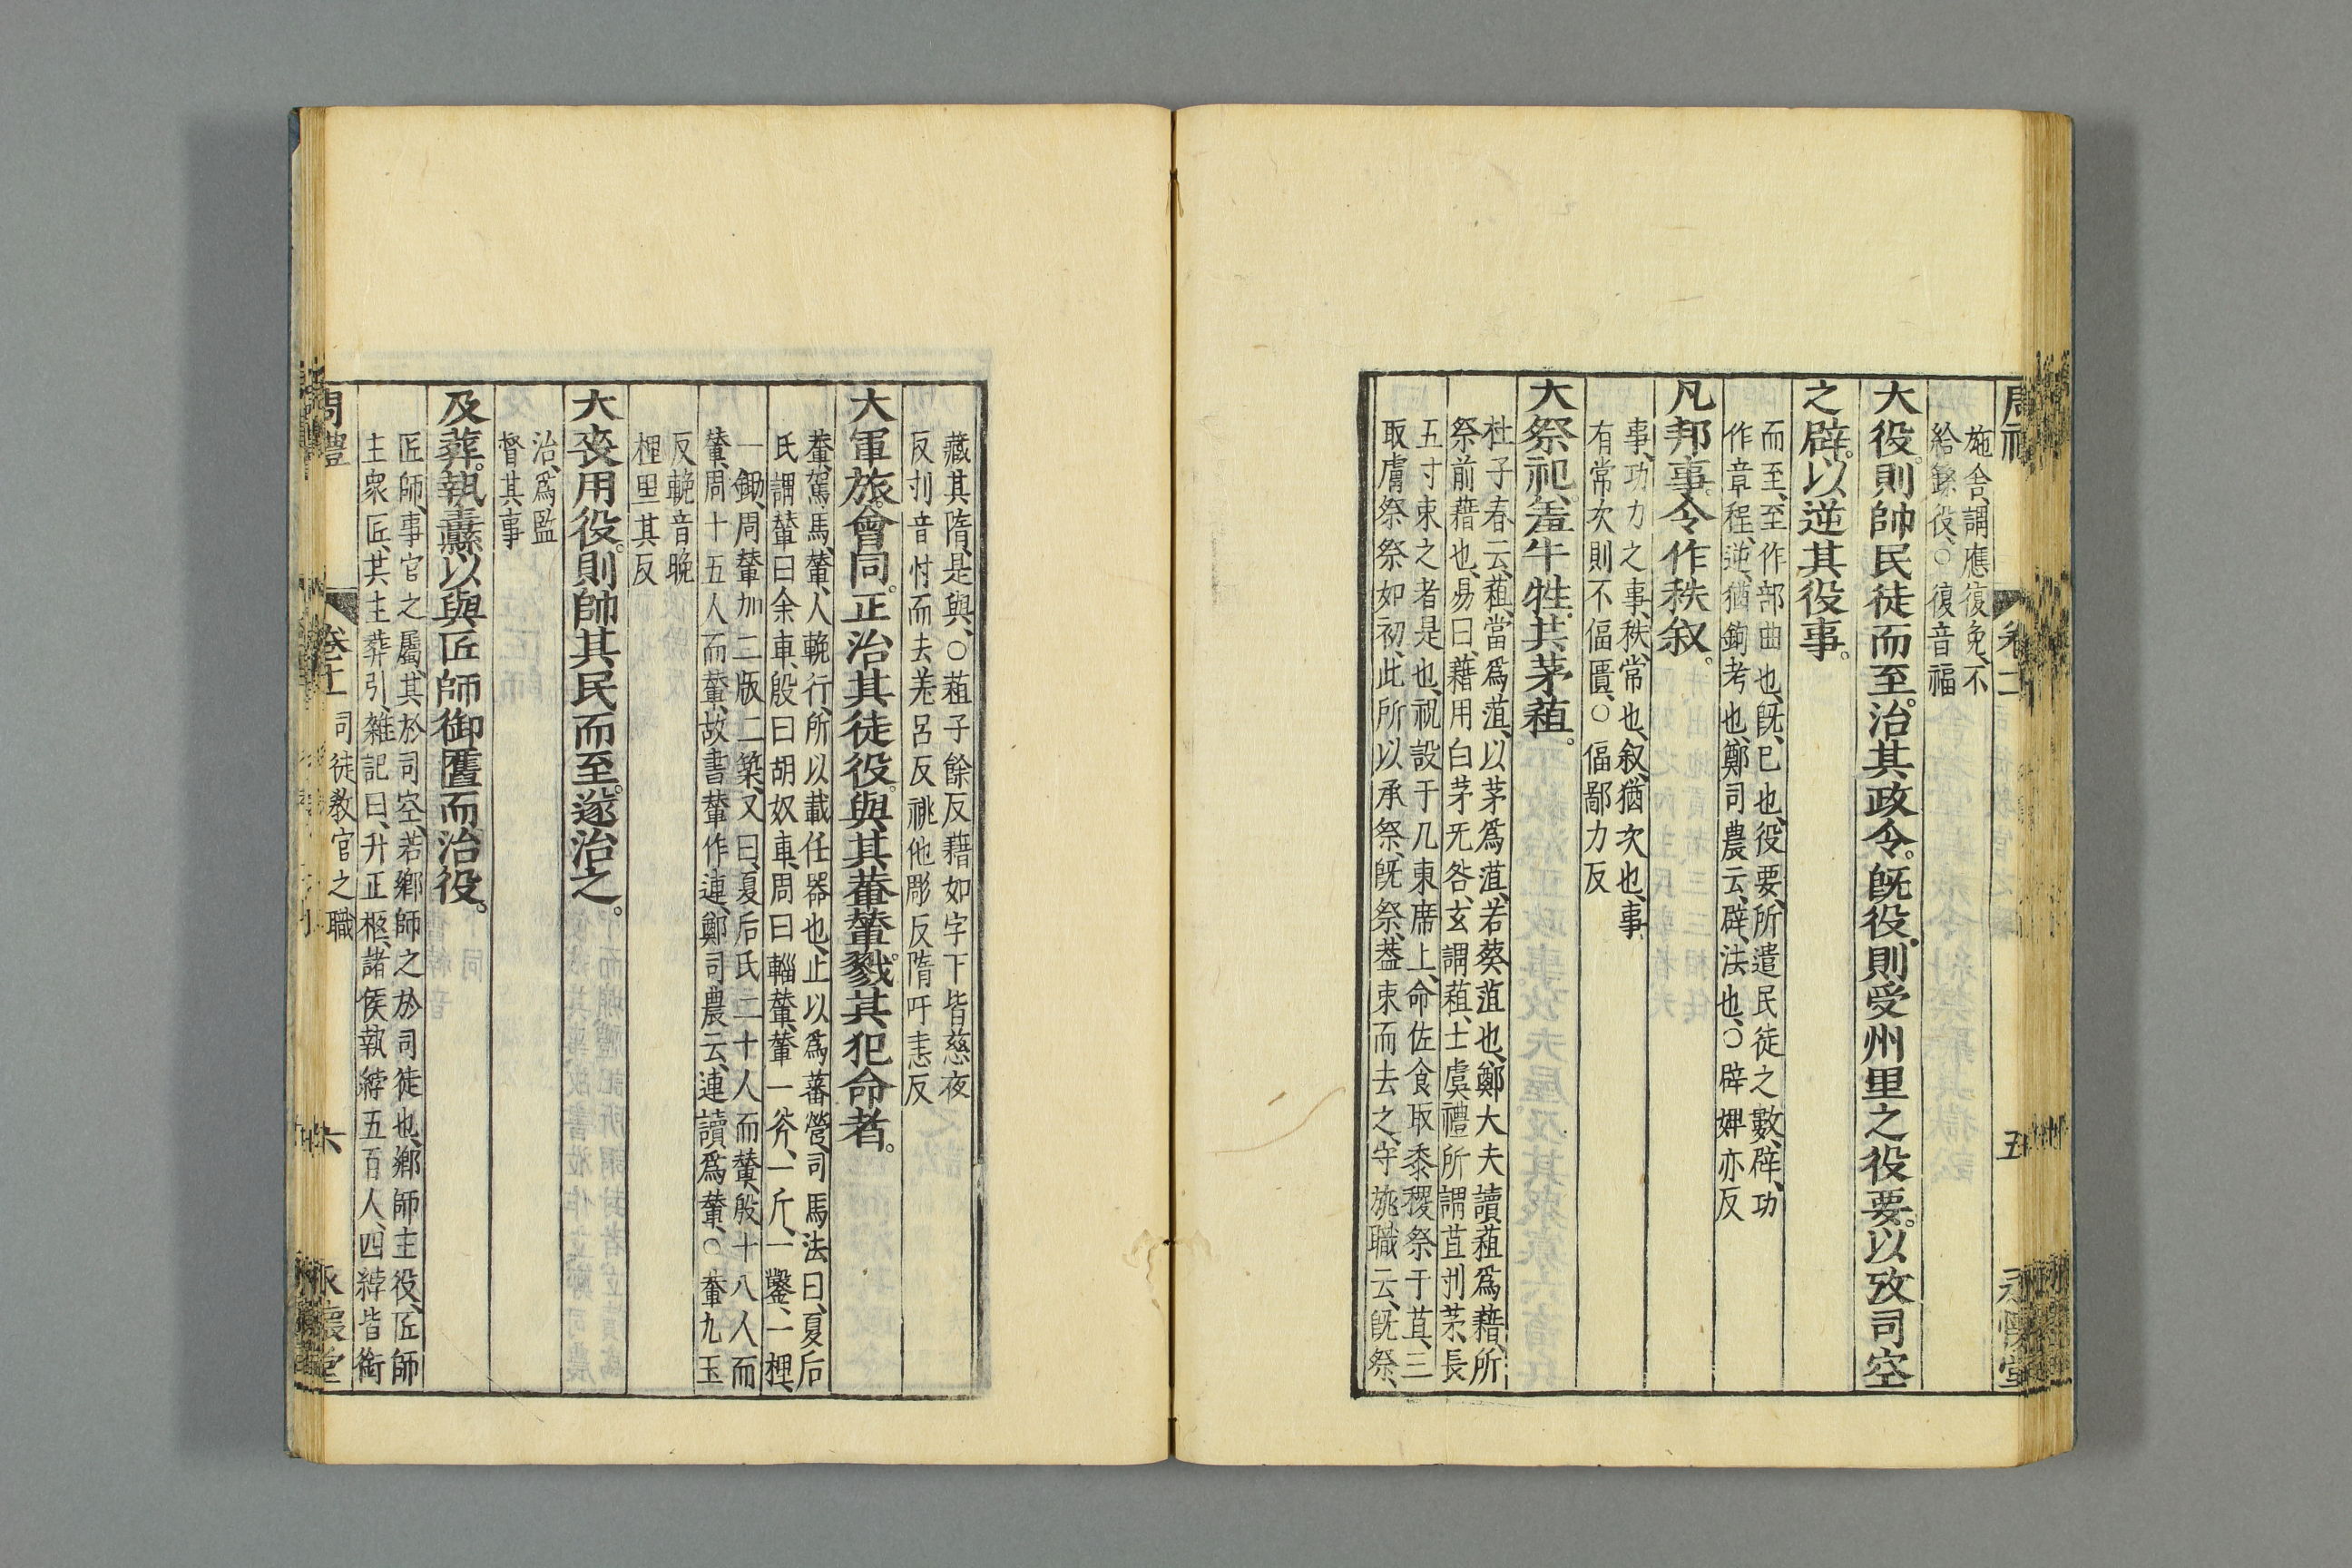 周禮 卷二 五 永懷堂
施舍、謂應復免、不
給繇役、○復音福
大役。則帥民徒而至。治其政令。旣役。則受州里之役要。以攷司空
之辟。以逆其役事。
而至、至作部曲也、旣、已也、役要、所遣民徒之數、辟、功
作章程、逆、猶鉤考也、鄭司農云、辟、法也、○辟婢亦反
凡邦事。令作秩叙。
事、功力之事、秩、常也、叙、猶次也、事
有常次則不偪匱、○偪鄙力反
大祭祀。羞牛牲。共茅蒩。
杜子春云、蒩、當爲菹、以茅爲菹、若葵菹也、鄭大夫讀蒩爲藉、所
祭前藉也、易曰、藉用白茅无咎、玄謂蒩、士虞禮所謂苴刌茅、長
五寸束之者是也、祝設于几東席上、命佐食取黍稷祭于苴、三
取膚祭祭如初、此所以承祭、旣祭、蓋束而去之、守祧職云、旣祭、
藏其隋、是與、○蒩子餘反藉如字下皆慈夜
反刌音忖而去羌呂反祧他彫反隋吁恚反
大軍旅。會同。正治其徒役。與其輂輦。戮其犯命者。
輂、駕馬、輦、人輓行、所以載任器也、止以爲蕃營、司馬法曰、夏后
氏謂輦曰余車、殷曰胡奴車、周曰輜輦、輦一斧、一斤、一鑿、一梩、
一鋤、周輦加二版二築、又曰、夏后氏二十人而輦、殷十八人而
輦、周十五人而輦、故書輦作連、鄭司農云、連讀爲輦、○輂九玉
反輓音晚
梩里其反
大喪用役。則帥其民而至。遂治之。
治、爲監
督其事
及葬。執纛以與匠師御匶而治役。
匠師、事官之屬、其於司空、若鄉師之於司徒也、鄉師主役、匠師
主衆匠、其主葬引、雜記曰、升正柩、諸侯執綍五百人、四綍皆銜
周禮 卷十一 司徒敎官之職 六 永懷堂